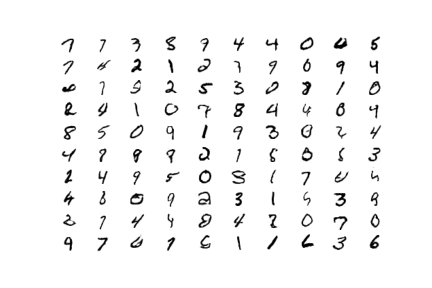 7 7 3 8 9 4 4 0 0 5
7 4 2 1 2 7 9 0 9 4
6 1 9 2 5 3 0 8 1 0
2 9 1 0 7 8 4 4 0 4
8 5 0 9 1 9 3 0 2 4
4 9 8 9 2 1 8 0 5 3
2 4 9 5 0 8 1 7 0 4
4 8 0 9 2 3 1 5 3 9
2 7 4 4 0 4 2 0 7 0
9 7 0 1 6 1 1 6 3 6